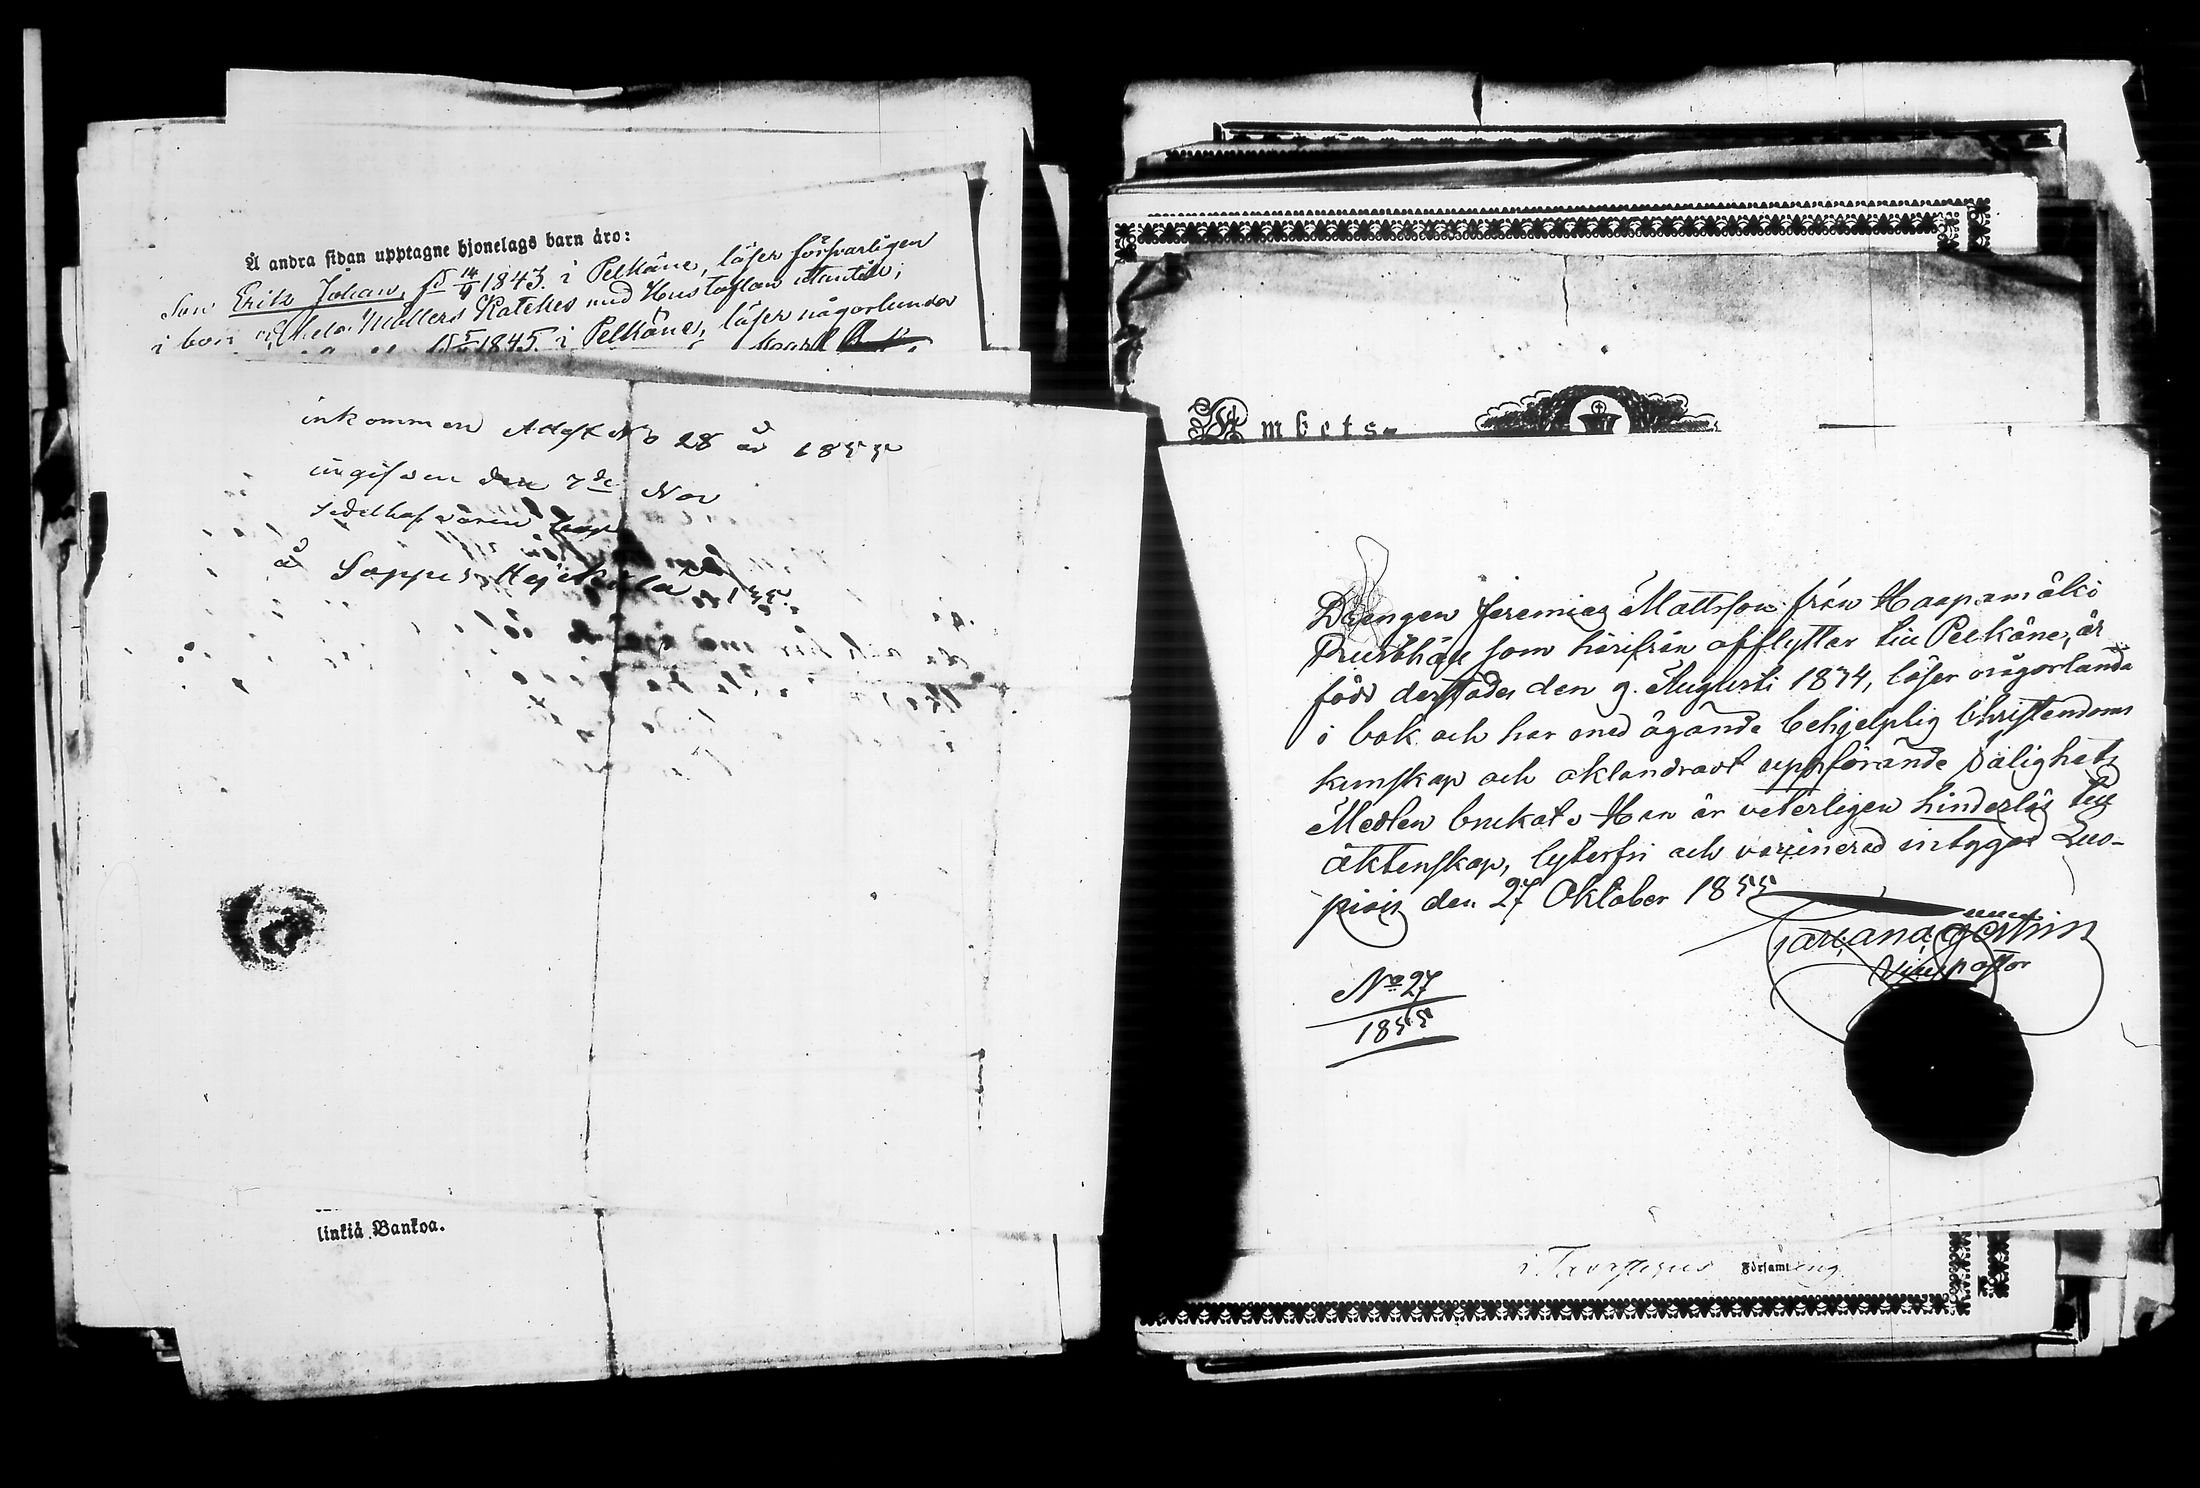 Å andra sidan upptagne hjonelags barn äro:
Son Erik Johan, fd 14/9 1843. i Pelkäne, läser försvarligen
i bok och hela Möllers Katekes med Hustaflan utantill;
1845. i Pelkäne, läser någorlunda
inkommen Attest No 28 år 1855
ingifven den 7de Nov
Sedelhafvaren
å Sappu 1855.
linkiä Bankoa.
Embets-
Drengen Jeremias Mattsson från Haapamäki
Prusthåll som härifrån afflyttar till Pelkäne, är
född derstädes den 9. Augusti 1834, läser någorlunda
i bok och har med ägande behjelplig Christendoms
kunskap och oklandradt uppförande Salighets
Medlen brukat. Han är veterligen hinderlös till
äktenskap, lytesfri och vaccinerad intygas Luo-
piois den 27 Oktober 1855
Vice pastor
No 27
1855
i Tavastehus Församling.